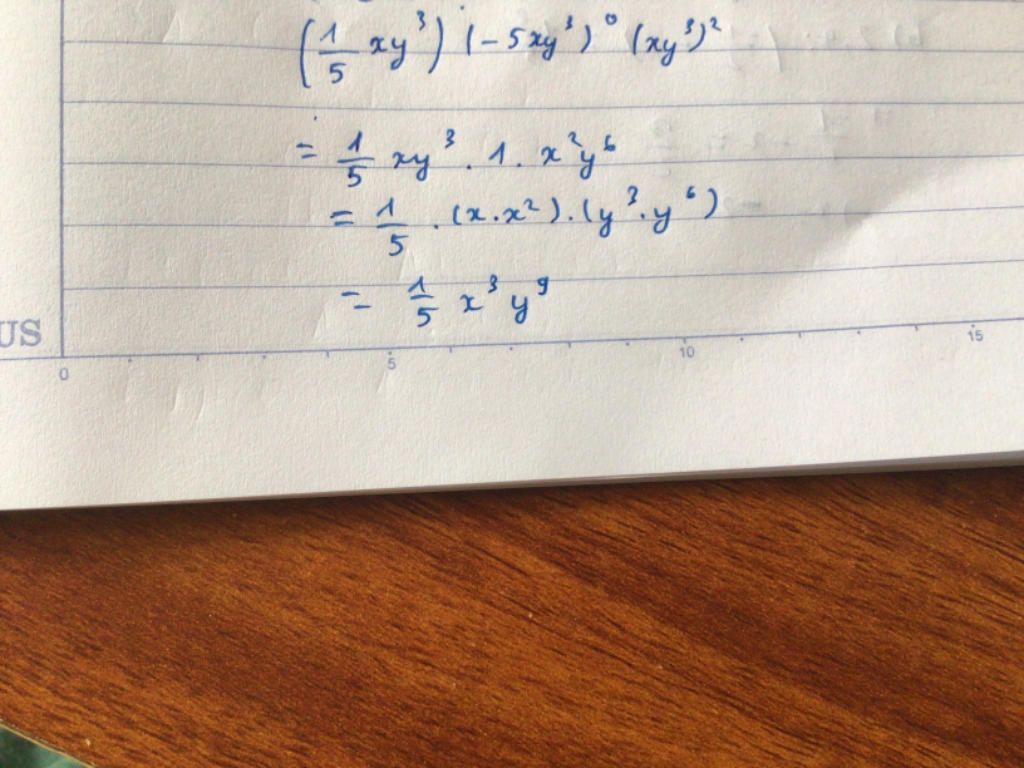 (1/5 xy³) (-5xy³)⁰ (xy³)²
= 1/5 xy³ . 1 . x²y⁶
= 1/5 . (x.x²) . (y³.y⁶)
= 1/5 x³ y⁹
US
0 5 10 15